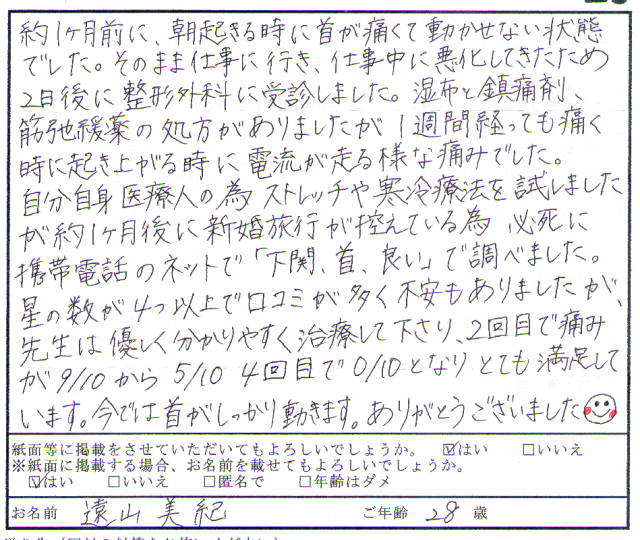 約1ヶ月前に、朝起きる時に首が痛くて動かせない状態
でした。そのまま仕事に行き、仕事中に悪化してきたため
2日後に整形外科に受診しました。湿布と鎮痛剤、
筋弛緩薬の処方がありましたが1週間経っても痛く
時に起き上がる時に電流が走る様な痛みでした。
自分自身医療人の為ストレッチや寒冷療法を試しました
が約1ヶ月後に新婚旅行が控えている為、必死に
携帯電話のネットで「下関、首、良い」で調べました。
星の数が4つ以上で口コミが多く不安もありましたが、
先生は優しく分かりやすく治療して下さり、2回目で痛み
が9/10から5/10 4回目で0/10となりとても満足して
います。今では首がしっかり動きます。ありがとうございました
紙面等に掲載をさせていただいてもよろしいでしょうか。 ☑はい □いいえ
※紙面に掲載する場合、お名前を載せてもよろしいでしょうか。
☑はい □いいえ □匿名で □年齢はダメ
お名前 遠山 美紀 ご年齢 28 歳